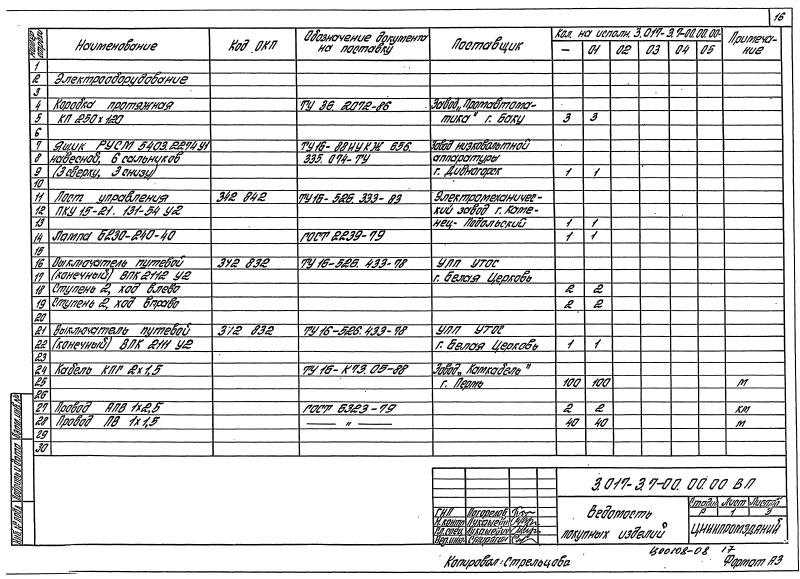 16
Наименование
Код ОКП
Обозначение документа на поставку
Поставщик
Кол. на исполн. 3.017-3.7-00.00.00-
Примечание
— 01 02 03 04 05
1
2 Электрооборудование
3
4 Коробка протяжная ТУ 36. 2072-86 Завод „Промавтома-
5 КП 250х120 тика" г. Баку 3 3
6
7 Ящик РУСМ 5403.2274У1 ТУ16-88 ИУКЖ 656. Завод низковольтной
8 навесной, 6 сальников 335.074-ТУ аппаратуры
9 (3 сверху, 3 снизу) г. Дивногорск 1 1
10
11 Пост управления 342 842 ТУ16-526. 333-83 Электромеханичес-
12 ПКУ 15-21. 131-54 У2 кий завод г. Каме-
13 нец-Подольский 1 1
14 Лампа Б230-240-40 ГОСТ 2239-79 1 1
15
16 Выключатель путевой 342 832 ТУ16-526. 433-78 УПП УТОС
17 (конечный) ВПК 2112 У2 г. Белая Церковь
18 Ступень 2, ход влево 2 2
19 Ступень 2, ход вправо 2 2
20
21 Выключатель путевой 342 832 ТУ16-526.433-78 УПП УТОС
22 (конечный) ВПК 2111 У2 г. Белая Церковь 1 1
23
24 Кабель КПГ 2х1,5 ТУ16-К73.05-88 Завод „Камкабель"
25 г. Пермь 100 100 м
26
27 Провод АПВ 1х2,5 ГОСТ 6323-79 2 2 км
28 Провод ПВ 1х1,5 — " — 40 40 м
29
30
3.017-3.7-00.00.00 ВП
Ведомость покупных изделий
Стадия Лист Листов
Р 1 9
ЦНИИПРОМЗДАНИЙ
ГИП
Н.контр
Ц00108-08 17
Копировал: Стрельцова
Формат А3